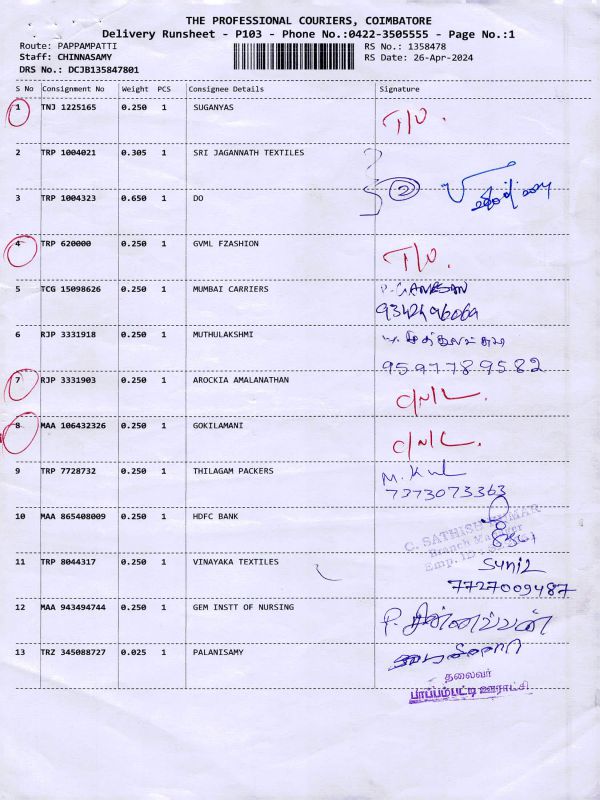 THE PROFESSIONAL COURIERS, COIMBATORE
Delivery Runsheet - P103 - Phone No.:0422-3505555 - Page No.:1
Route: PAPPAMPATTI RS No.: 1358478
Staff: CHINNASAMY RS Date: 26-Apr-2024
DRS No.: DCJB135847801
S No Consignment No Weight PCS Consignee Details Signature
1 TNJ 1225165 0.250 1 SUGANYAS T/U.
2 TRP 1004021 0.305 1 SRI JAGANNATH TEXTILES
3 TRP 1004323 0.650 1 DO 2
4 TRP 620000 0.250 1 GVML FZASHION T/U.
5 TCG 15098626 0.250 1 MUMBAI CARRIERS P. GANESAN
6 RJP 3331918 0.250 1 MUTHULAKSHMI
9597789582
7 RJP 3331903 0.250 1 AROCKIA AMALANATHAN C/N/L.
8 MAA 106432326 0.250 1 GOKILAMANI C/N/L.
9 TRP 7728732 0.250 1 THILAGAM PACKERS
7373073363
10 MAA 865408009 0.250 1 HDFC BANK
C. SATHISH KUMAR
Branch Manager
Emp. ID
11 TRP 8044317 0.250 1 VINAYAKA TEXTILES Sunil
7727009487
12 MAA 943494744 0.250 1 GEM INSTT OF NURSING P. சின்னப்பன்
13 TRZ 345088727 0.025 1 PALANISAMY
தலைவர்
பாப்பம்பட்டி ஊராட்சி